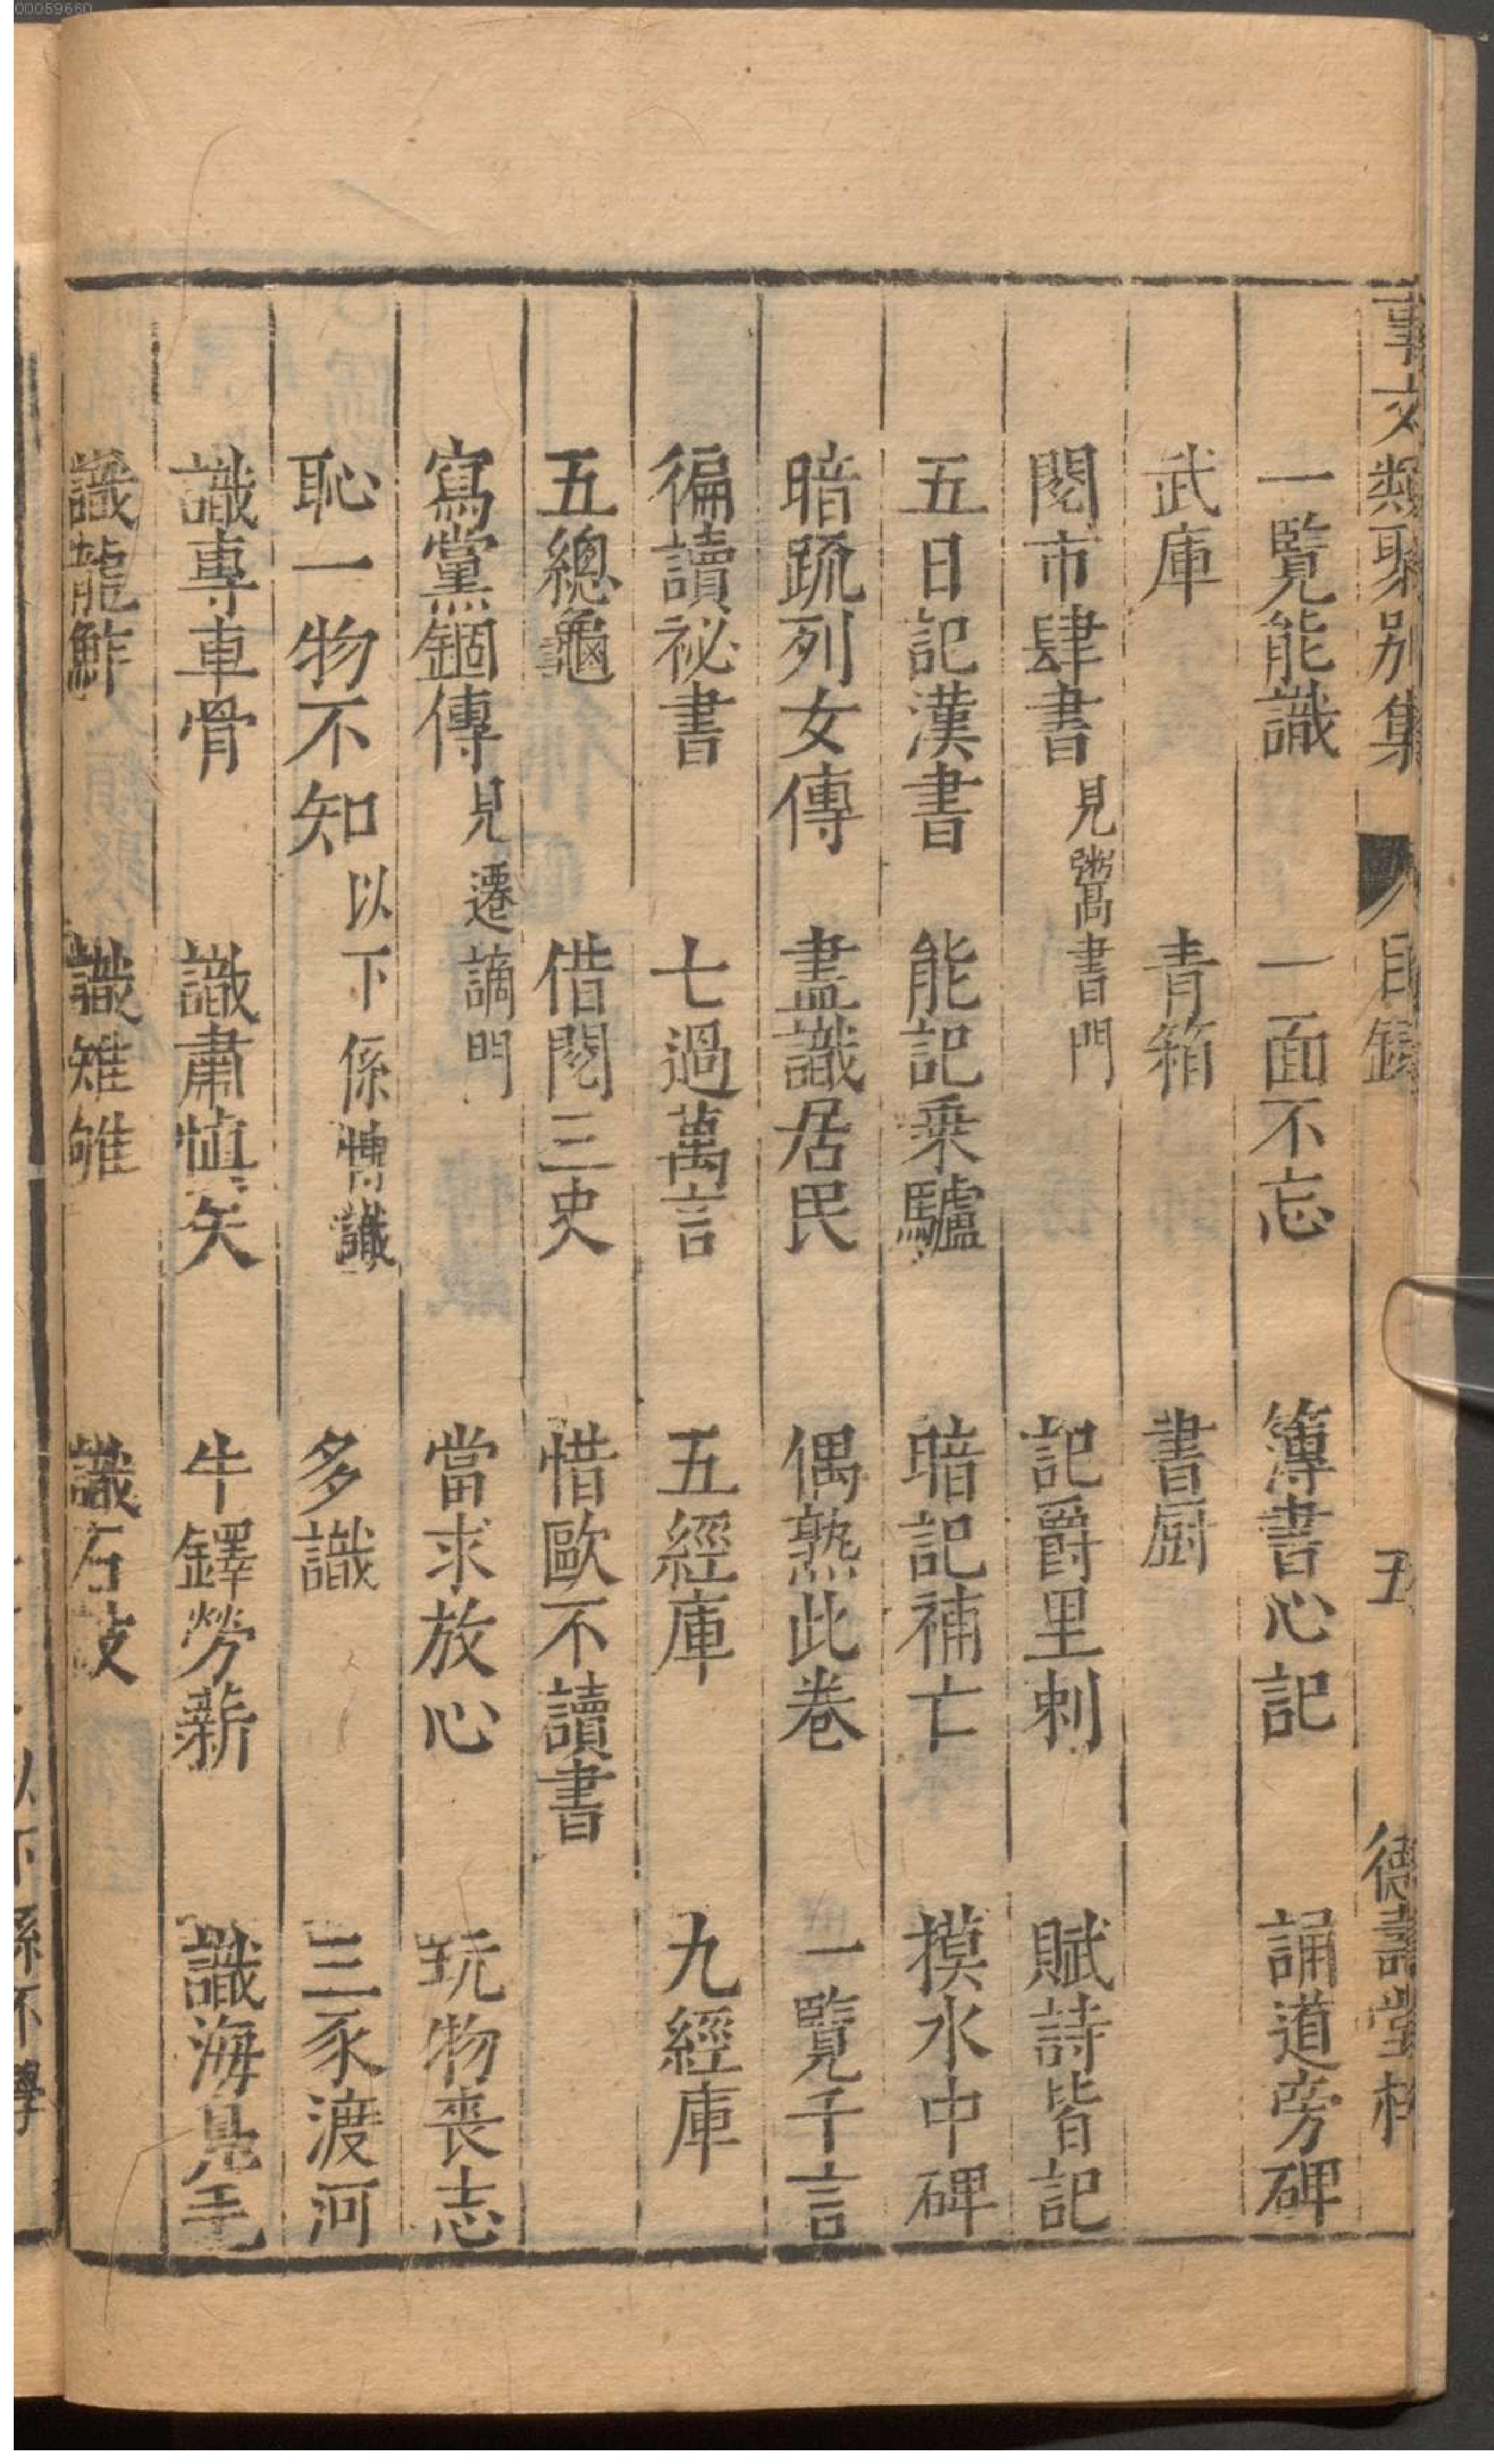 00059660
事文類聚别集 目錄 五 德壽堂梓
一覧能識 一面不忘 簿書心記 誦道旁碑
武庫 青箱 書厨
閱市肆書 見鬻書門 記爵里刺 賦詩皆記
五日記漢書 能記乗驢 暗記補亡 摸水中碑
暗疏列女傳 盡識居民 偶熟此卷 一覧千言
徧讀祕書 七過萬言 五經庫 九經庫
五總龜 借閱三史 惜歐不讀書
寫黨錮傳 見遷謫門 當求放心 玩物喪志
恥一物不知 以下係博識 多識 三豕渡河
識專車骨 識肅慎矢 牛鐸勞薪 識海鳧毛
識龍鮓 識雉雊 識石鼓
以下係不學